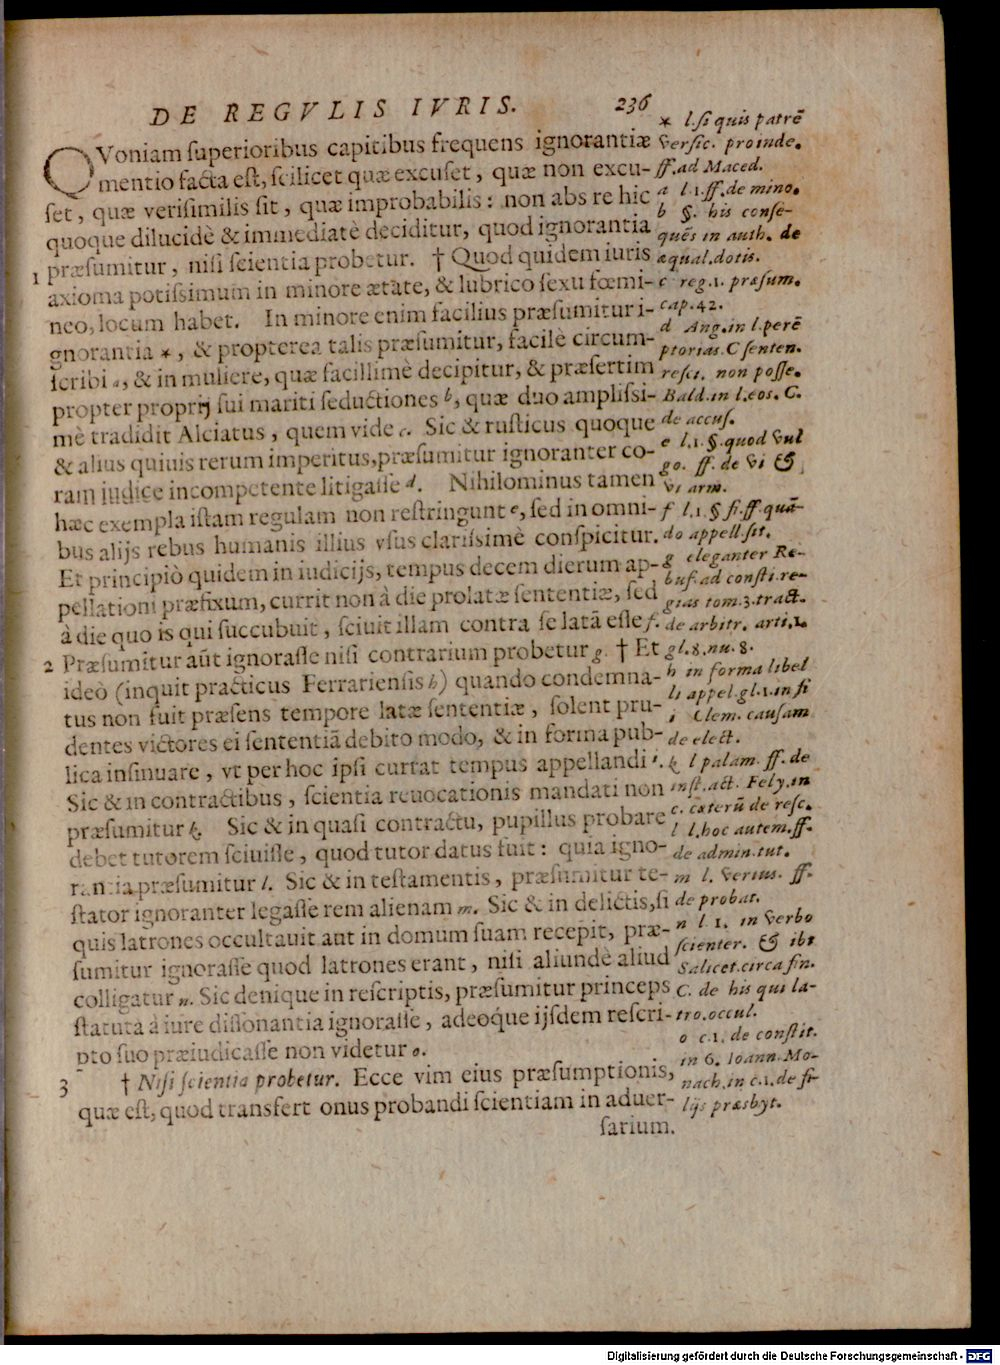 DE REGVLIS IVRIS. 236
QVoniam ſuperioribus capitibus frequens ignorantiæ
mentio facta eſt, ſcilicet quæ excuſet, quæ non excu-
ſet, quæ veriſimilis ſit, quæ improbabilis: non abs re hic
quoque dilucidè & immediatè deciditur, quod ignorantia
1 præſumitur, niſi ſcientia probetur. † Quod quidem iuris
axioma potiſsimum in minore ætate, & lubrico ſexu fœmi-
neo, locum habet. In minore enim facilius præſumitur i-
gnorantia *, & propterea talis præſumitur, facilè circum-
ſcribi a, & in muliere, quæ facillimè decipitur, & præſertim
propter proprij ſui mariti ſeductiones b, quæ duo ampliſsi-
mè tradidit Alciatus, quem vide c. Sic & ruſticus quoque
& alius quiuis rerum imperitus, præſumitur ignoranter co-
ram iudice incompetente litigaſſe d. Nihilominus tamen
hæc exempla iſtam regulam non reſtringunt e, ſed in omni-
bus alijs rebus humanis illius vſus clariſsimè conſpicitur.
Et principiò quidem in iudicijs, tempus decem dierum ap-
pellationi præfixum, currit non à die prolatæ ſententiæ, ſed
à die quo is qui ſuccubuit, ſciuit illam contra ſe latā eſſe f.
2 Præſumitur aūt ignoraſſe niſi contrarium probetur g. † Et
ideò (inquit practicus Ferrarienſis h) quando condemna-
tus non fuit præſens tempore latæ ſententiæ, ſolent pru-
dentes victores ei ſententiā debito modo, & in forma pub-
lica inſinuare, vt per hoc ipſi currat tempus appellandi i.
Sic & in contractibus, ſcientia reuocationis mandati non
præſumitur k. Sic & in quaſi contractu, pupillus probare
debet tutorem ſciuiſſe, quod tutor datus fuit: quia igno-
rantia præſumitur l. Sic & in teſtamentis, præſumitur te-
ſtator ignoranter legaſſe rem alienam m. Sic & in delictis, ſi
quis latrones occultauit aut in domum ſuam recepit, præ-
ſumitur ignoraſſe quod latrones erant, niſi aliundè aliud
colligatur n. Sic denique in reſcriptis, præſumitur princeps
ſtatuta à iure diſſonantia ignoraſſe, adeoq́ue ijſdem reſcri-
pto ſuo præiudicaſſe non videtur o.
3 † Niſi ſcientia probetur. Ecce vim eius præſumptionis,
quæ eſt, quod transfert onus probandi ſcientiam in aduer-
ſarium.
* l. ſi quis patrē
verſic. proinde.
ff. ad Maced.
a l. 1. ff. de mino.
b §. his conſe-
quēs in auth. de
æqual. dotis.
c reg. 1. præſum.
cap. 42.
d Ang. in l. perē
ptorias. C ſenten.
reſci. non poſſe.
Bald. in l. eos. C.
de accuſ.
e l. 1. §. quod vul
go. ff. de vi &
vi arm.
f l. 1. § fi. ff. quā-
do appell. ſit.
g eleganter Re-
buf. ad conſti. re-
gias tom. 3. tract.
de arbitr. arti. 1.
gl. 8. nu. 8.
h in forma libel
li appel. gl. 1. in fi
i Clem. cauſam
de elect.
k l palam. ff. de
inſt. act. Fely. in
c. cæterū de reſc.
l l. hoc autem. ff.
de admin. tut.
m l. verius. ff.
de probat.
n l 1. in verbo
ſcienter. & ibi
Salicet. circa fin.
C. de his qui la-
tro. occul.
o c. 1. de conſtit.
in 6. Ioann. Mo-
nach. in c. 1. de fi-
lijs præsbyt.
Digitalisierung gefördert durch die Deutsche Forschungsgemeinschaft - DFG